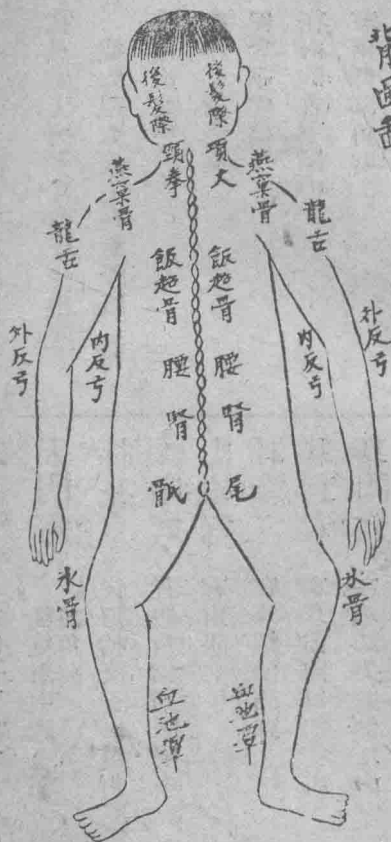 背面圖
後髮際
後髮際
項大
頸拳
燕窠骨
燕窠骨
龍舌
龍舌
飯匙骨
飯匙骨
外反弓
外反弓
內反弓
內反弓
腰
腰
腎
腎
尾
骶
氷骨
氷骨
血池潭
血池潭